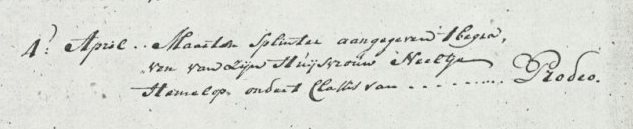 4: April.. Maarten Splinter aangegeven 't begra,
ven van zijn Huijsvrouw Neeltje
Hamelop, ondert Classis van - - - - - - - - - Prodeo.